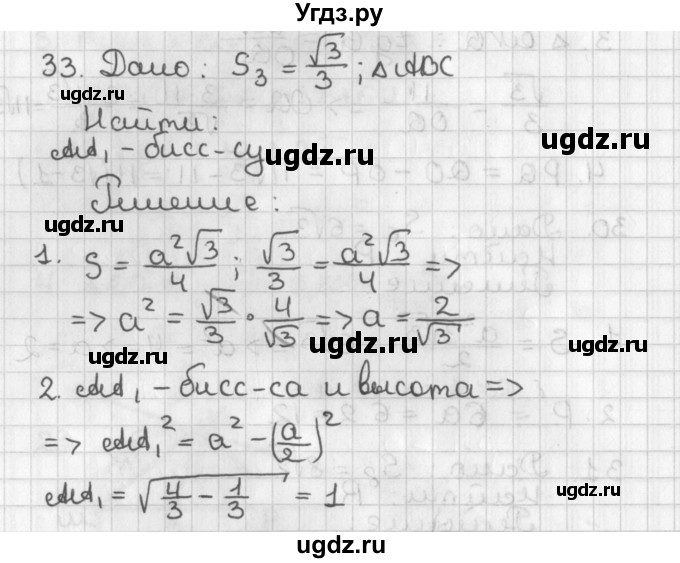 Угдз.ру
33. Дано: S₃ = √3/3; △ABC
ugdz.ru
Найти:
ugdz.ru
AA₁ – бисс-су
ugdz.ru
ugdz.ru
Решение:
ugdz.ru
1. S = a²√3/4; √3/3 = a²√3/4 =>
=> a² = √3/3 · 4/√3 => a = 2/√3
ugdz.ru
ugdz.ru
2. AA₁ – бисс-са и высота =>
=> AA₁² = a² – (a/2)²
ugdz.ru
AA₁ = √(4/3 – 1/3) = 1
ugdz.ru
ugdz.ru